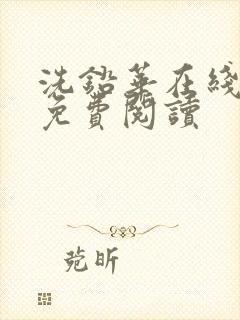 洗鉛華在綫
免費閱讀
菀昕